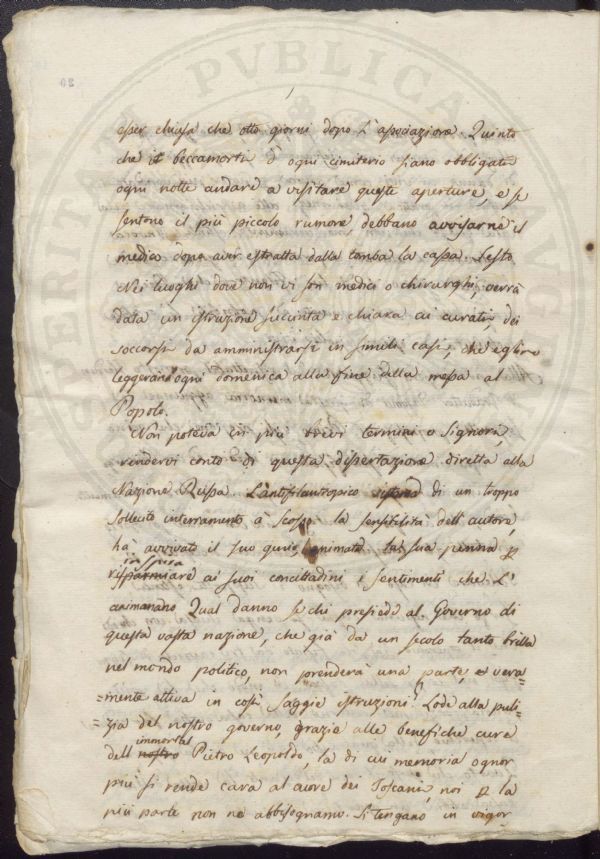 esser chiusa che otto giorni dopo l'associazione. Quinto
che i beccamorti d'ogni cimiterio siano obbligati
ogni notte andare a visitare queste aperture, e se
sentono il più piccolo rumore, debbano avvisarne il
medico dopo aver estratta dalla tomba la cassa. Sesto
Nei luoghi dove non vi son medici o chirurghi, verrà
data un istruzione succinta e chiara ai curati, dei
soccorsi da amministrarsi in simili casi, che eglino
leggeranno ogni domenica alla fine della messa al
Popolo.
Non poteva in più brevi termini o Signori,
rendervi conto di questa dissertazione diretta alla
Nazione Russa. L'antifilantropico sistema di un troppo
sollecito interramento à scosso la sensibilità dell'autore,
hà avvivato il suo genio, animata la sua penna p
inspirare ai suoi concittadini i sentimenti che l'
animavano Qual danno se chi presiede al Governo di
questa vasta nazione, che già da un secolo tanto brilla
nel mondo politico, non prenderà una parte, vera=
=mente attiva in così saggie istruzioni! Lode alla puli=
=zia del nostro governo, grazie alle benefiche cure
dell' immortal Pietro Leopoldo, la di cui memoria ognor
più si rende cara al cuore dei Toscani, noi p la
più parte non ne abbisognamo. Si tengano in vigor=
PVBLICA